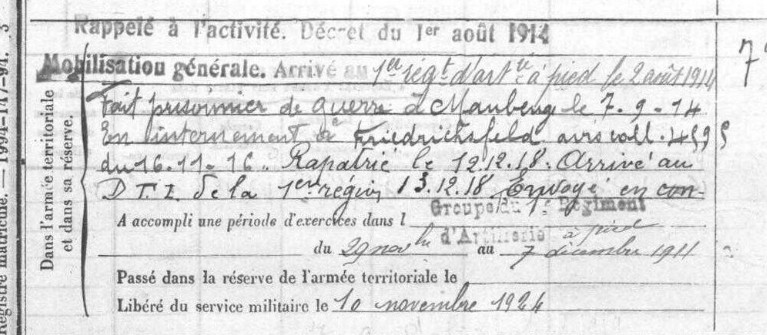 Rappelé à l'activité. Décret du 1er août 1914
Mobilisation générale. Arrivé au 1er régt d'artie à pied le 2 août 1914
Fait prisonnier de guerre à Maubeuge le 7-9-14
En internement à Friedrichsfeld avis coll.
du 16.11.16. Rapatrié le 12.12.18. Arrivé au
D.T.I. de la 1ere région 13.12.18 Envoyé en con-
A accompli une période d'exercices dans l Groupe du 1er Régiment
d'Artillerie à pied
du 29 novbre au 7 décembre 1911
Passé dans la réserve de l'armée territoriale le
Libéré du service militaire le 10 novembre 1924
Dans l'armée territoriale
et dans sa réserve.
Registre matricule. — 1994-147-94.